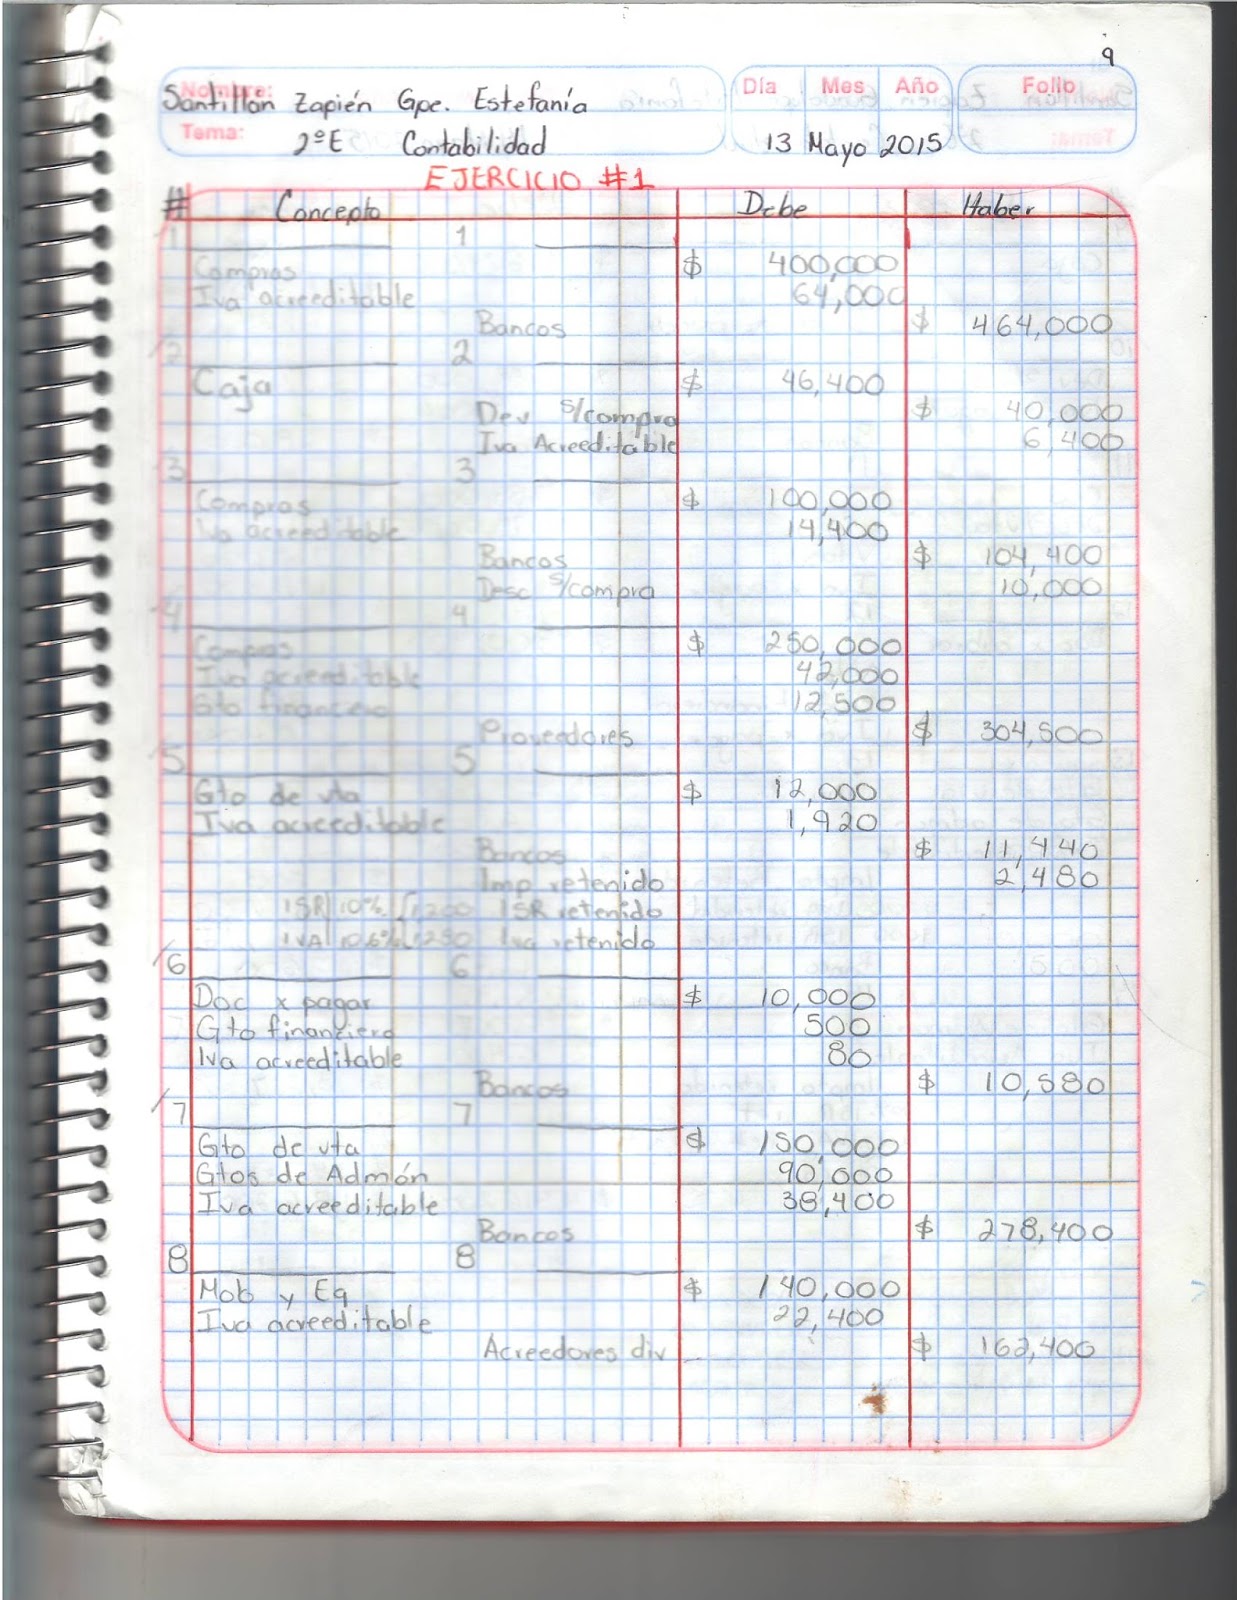 9
Nombre: Santillan Zapién Gpe. Estefanía
Día Mes Año Folio
Tema: 2ºE Contabilidad
13 Mayo 2015
EJERCICIO #1
# Concepto Debe Haber
1 1
Compras $ 400,000
Iva acreeditable 64,000
Bancos $ 464,000
2 2
Caja $ 46,400
Dev s/compra $ 40,000
Iva Acreeditable 6,400
3 3
Compras $ 100,000
Iva acreeditable 14,400
Bancos $ 104,400
Desc s/compra 10,000
4 4
Compras $ 250,000
Iva acreeditable 42,000
Gto financiero 12,500
Proveedores $ 304,500
5 5
Gto de vta $ 12,000
Iva acreeditable 1,920
Bancos $ 11,440
Imp retenido 2,480
ISR 10% 1200 ISR retenido
IVA 10.6% 1280 Iva retenido
6 6
Doc x pagar $ 10,000
Gto financiero 500
Iva acreeditable 80
Bancos $ 10,580
7 7
Gto de vta $ 150,000
Gtos de Admón 90,000
Iva acreeditable 38,400
Bancos $ 278,400
8 8
Mob y Eq $ 140,000
Iva acreeditable 22,400
Acreedores div $ 162,400